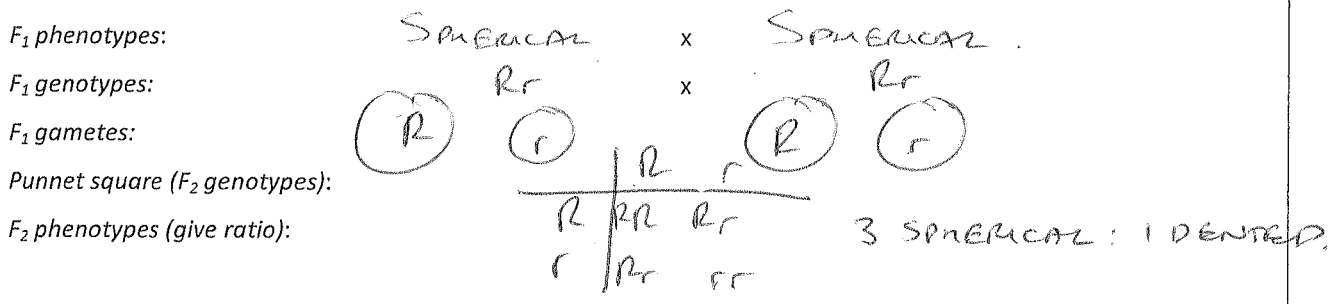 F₁ phenotypes: SPHERICAL x SPHERICAL.
F₁ genotypes: Rr x Rr
F₁ gametes: R r R r
Punnet square (F₂ genotypes): R r
F₂ phenotypes (give ratio): R RR Rr 3 SPHERICAL : 1 DENTED.
r Rr rr